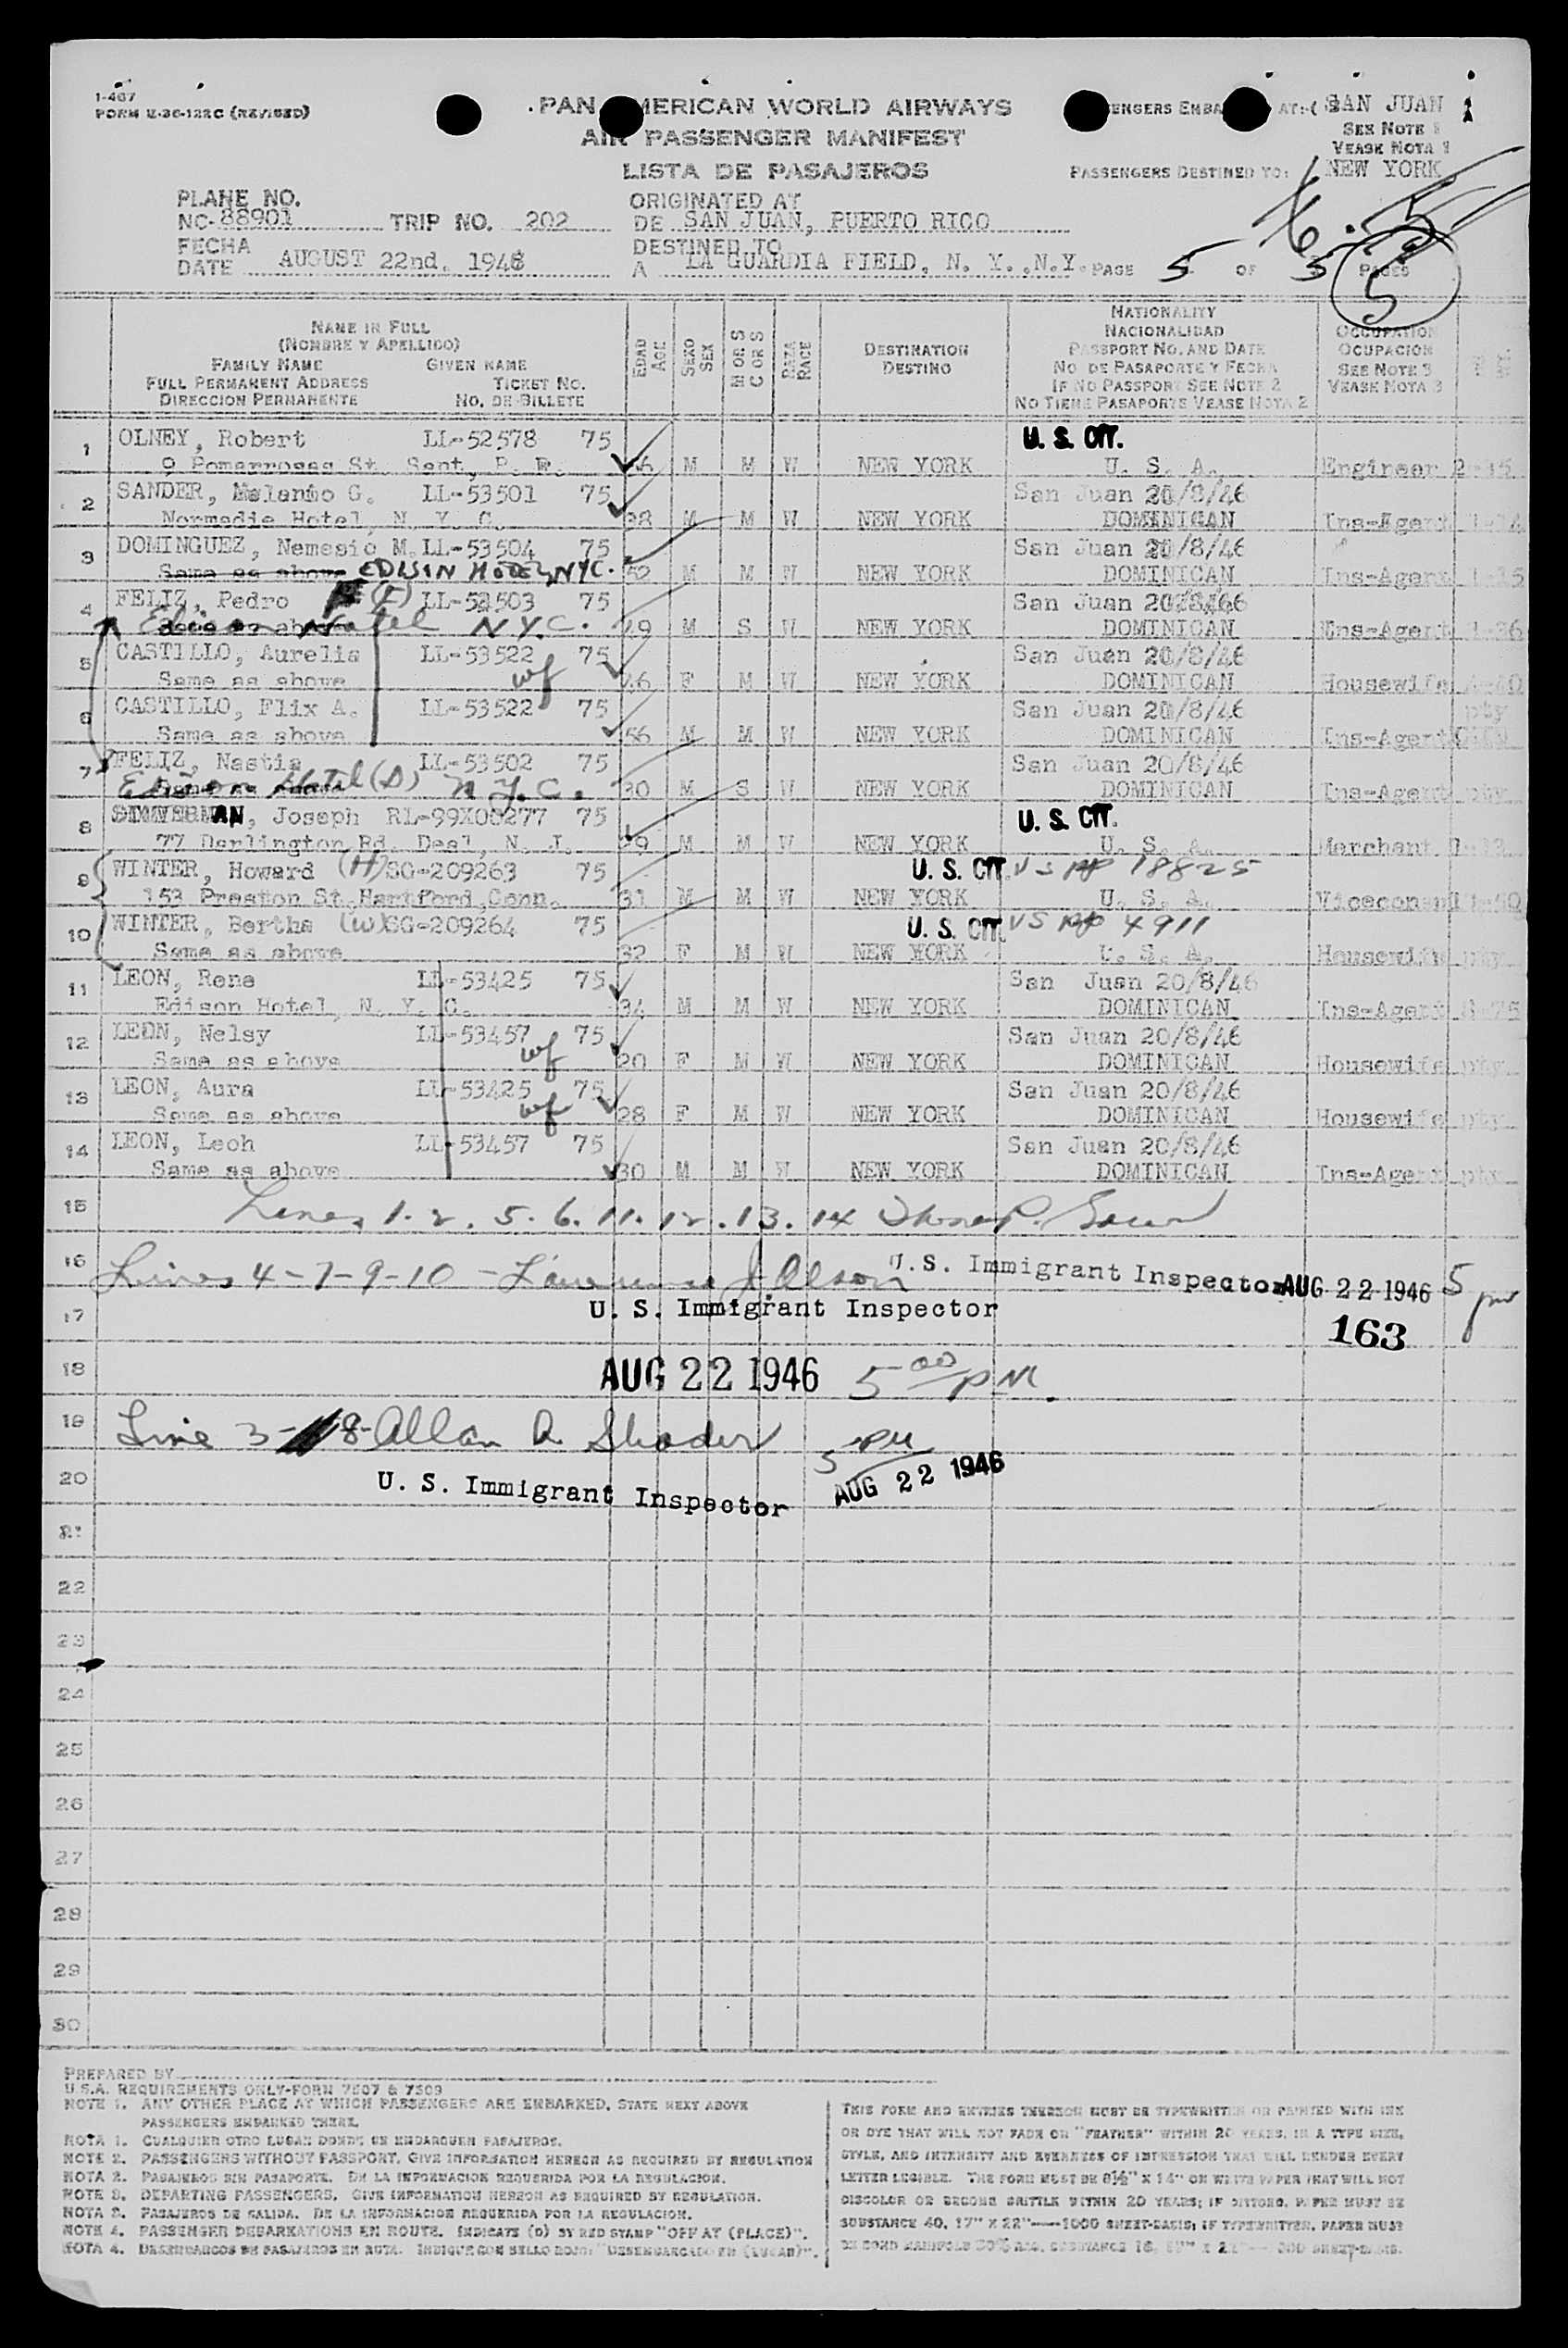 I-467
FORM E-36-122C (REVISED)
PAN AMERICAN WORLD AIRWAYS
AIR PASSENGER MANIFEST
LISTA DE PASAJEROS
PASSENGERS EMBARKED AT:-( SAN JUAN
SEE NOTE 1
VEASE NOTA 1
PASSENGERS DESTINED TO: NEW YORK
PLANE NO.
NC- 88901 TRIP NO. 202
ORIGINATED AT
DE SAN JUAN, PUERTO RICO
FECHA
DATE AUGUST 22nd. 1946
DESTINED TO
A LA GUARDIA FIELD, N. Y.,N.Y. PAGE 5 OF 5 PAGES
5
NAME IN FULL
(NOMBRE Y APELLIDO)
FAMILY NAME GIVEN NAME
FULL PERMANENT ADDRESS TICKET NO.
DIRECCION PERMANENTE NO. DE BILLETE
EDAD AGE
SEXO SEX
M OR S C OR S
RAZA RACE
DESTINATION
DESTINO
NATIONALITY
NACIONALIDAD
PASSPORT NO. AND DATE
NO DE PASAPORTE Y FECHA
IF NO PASSPORT SEE NOTE 2
NO TIENE PASAPORTE VEASE NOTA 2
OCCUPATION
OCUPACION
SEE NOTE 3
VEASE NOTA 3
1 OLNEY, Robert LL-52578 75 U. S. CIT.
9 Pomarrosas St. Sant, P. R. M M W NEW YORK U. S. A. Engineer
2 SANDER, G. LL-53501 75 San Juan 20/8/46
Normadie Hotel, N. Y. C. 38 M M W NEW YORK DOMINICAN Ins-Agent
3 DOMINGUEZ, Nemesio M. LL-53504 75 San Juan 20/8/46
Same as above EDISIN HOTEL, NYC. 52 M M W NEW YORK DOMINICAN Ins-Agent
4 FELIZ, Pedro LL-53503 75 San Juan
Edison Hotel N.Y.C. 29 M S W NEW YORK DOMINICAN Ins-Agent
5 CASTILLO, Aurelia LL-53522 75 San Juan 20/8/46
Same as above wf 46 F M W NEW YORK DOMINICAN Housewife
6 CASTILLO, Flix A. LL-53522 75 San Juan 20/8/46 pty
Same as above 56 M M W NEW YORK DOMINICAN Ins-Agent
7 FELIZ, Nastia LL-53502 75 San Juan 20/8/46
Edison Hotel (S) N.Y.C. 30 M S W NEW YORK DOMINICAN Ins-Agent pty
8 Joseph RL-99X08277 75 U. S. CIT.
77 Darlington Rd. Deal, N. J. 29 M M W NEW YORK U. S. A. Merchant
9 WINTER, Howard (H) SG-209263 75 U. S. CIT. US PP 18825
153 Preston St.Hartford,Conn. 31 M M W NEW YORK U. S. A. Viceconsul
10 WINTER, Bertha (W) SG-209264 75 U. S. CIT. US PP 4911
Same as above 32 F M W NEW YORK U. S. A. Housewife pty
11 LEON, Rene LL-53425 75 San Juan 20/8/46
Edison Hotel, N. Y. C. 34 M M W NEW YORK DOMINICAN Ins-Agent
12 LEON, Nelsy LL-53457 75 San Juan 20/8/46
Same as above wf 20 F M W NEW YORK DOMINICAN Housewife pty
13 LEON, Aura LL-53425 75 San Juan 20/8/46
Same as above wf 28 F M W NEW YORK DOMINICAN Housewife pty
14 LEON, Leoh LL-53457 75 San Juan 20/8/46
Same as above 30 M M W NEW YORK DOMINICAN Ins-Agent pty
15 Lines 1. 2. 5. 6. 11. 12. 13. 14
16 Lines 4-7-9-10 - Lawrence J. Olson U. S. Immigrant Inspector AUG 22 1946 5 pm
17 U. S. Immigrant Inspector 163
18 AUG 22 1946 5 00 PM.
19 Line 3- 8- Allan R. Shader 5 PM
20 U. S. Immigrant Inspector AUG 22 1946
21
22
23
24
25
26
27
28
29
30
PREPARED BY
U.S.A. REQUIREMENTS ONLY-FORM 7507 & 7509
NOTE 1. ANY OTHER PLACE AT WHICH PASSENGERS ARE EMBARKED, STATE NEXT ABOVE
PASSENGERS EMBARKED THERE.
NOTA 1. CUALQUIER OTRO LUGAR DONDE SE EMBARQUEN PASAJEROS.
NOTE 2. PASSENGERS WITHOUT PASSPORT, GIVE INFORMATION HEREON AS REQUIRED BY REGULATION
NOTA 2. PASAJEROS SIN PASAPORTE. DE LA INFORMACION REQUERIDA POR LA REGULACION.
NOTE 3. DEPARTING PASSENGERS. GIVE INFORMATION HEREON AS REQUIRED BY REGULATION.
NOTA 3. PASAJEROS DE SALIDA. DE LA INFORMACION REQUERIDA POR LA REGULACION.
NOTE 4. PASSENGER DEBARKATIONS EN ROUTE. INDICATE (D) BY RED STAMP "OFF AT (PLACE)".
NOTA 4. DESEMBARCOS DE PASAJEROS EN RUTA. INDIQUE CON SELLO ROJO: "DESEMBARCADO EN (LUGAR)".
THIS FORM AND ENTRIES THEREON MUST BE TYPEWRITTEN OR PRINTED WITH INK
OR DYE THAT WILL NOT FADE OR "FEATHER" WITHIN 20 YEARS, IN A TYPE SIZE,
STYLE, AND INTENSITY AND EVENNESS OF IMPRESSION THAT WILL RENDER EVERY
LETTER LEGIBLE. THE FORM MUST BE 8½" X 14" ON WHITE PAPER THAT WILL NOT
DISCOLOR OR BECOME BRITTLE WITHIN 20 YEARS; IF DITTOED, PAPER MUST BE
SUBSTANCE 40, 17" X 22"----1000 SHEET-BASIS; IF TYPEWRITTEN, PAPER MUST
BE BOND MANIFOLD 50% RAG, SUBSTANCE 16, 17" X 22"